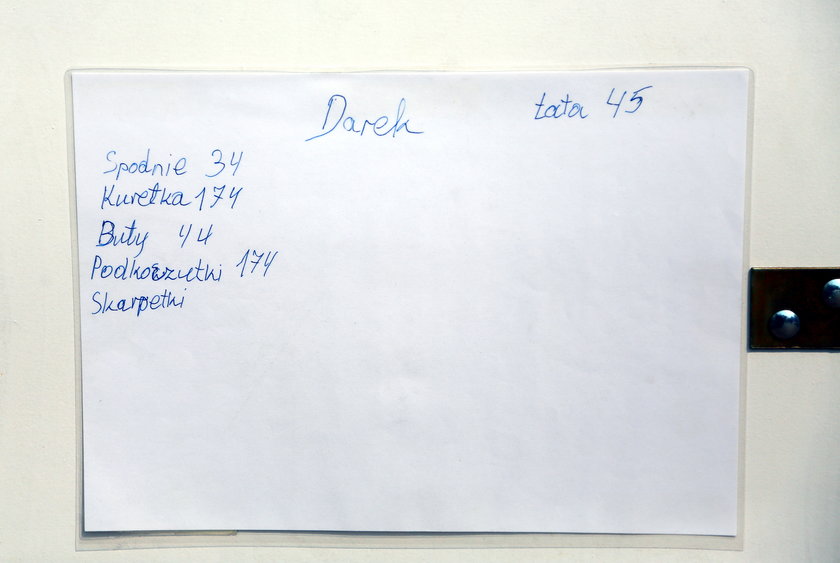 Darek
tata 45
Spodnie 34
Kuretka 174
Buty 44
Podkoszutki 174
Skarpetki